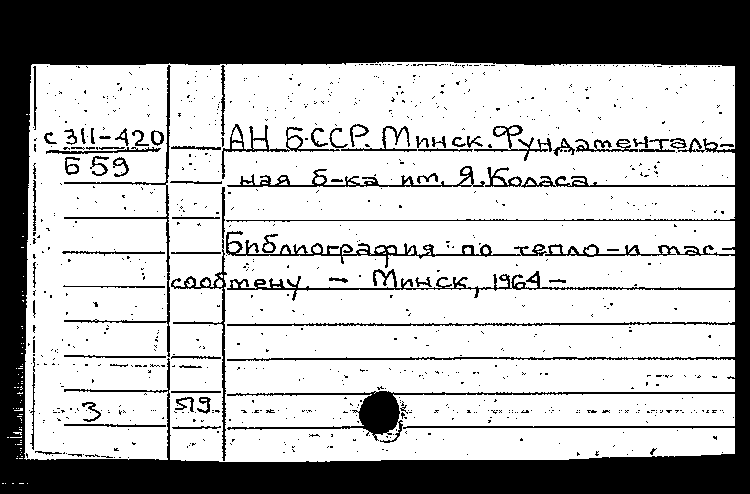 с 311-420
Б 59
АН БССР. Минск. Фундаменталь-
ная б-ка им. Я.Коласа.
Библиография по тепло-и мас-
сообмену. - Минск, 1964-
3
519